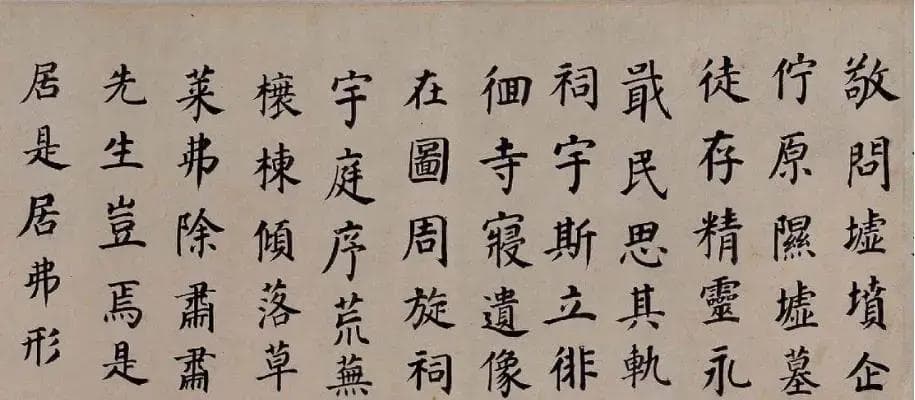 敬問墟墳企
佇原隰墟墓
徒存精靈永
戢民思其軌
祠宇斯立徘
徊寺寢遺像
在圖周旋祠
宇庭序荒蕪
榱棟傾落草
萊弗除肅肅
先生豈焉是
居是居弗形